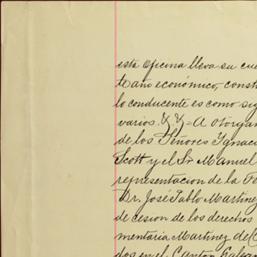 esta oficina lleva su cue
te año económico, const
lo conducente es como sig
varios. Y Y = A otorgam
de los Señores Ygnaci
Scott y el Sr. Manuel
representacion de la Te
Dr. José Pablo Martinez
de cesion de los derechos
mentaria Martinez del C
dos en el Canton Galea